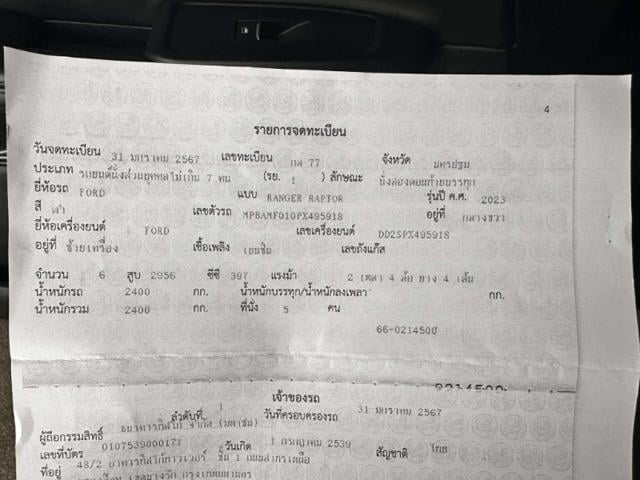 4
รายการจดทะเบียน
วันจดทะเบียน 31 มกราคม 2567 เลขทะเบียน กล 77 จังหวัด นครปฐม
ประเภท รถยนต์นั่งส่วนบุคคลไม่เกิน 7 คน (รย. 1 ) ลักษณะ นั่งสองตอนท้ายบรรทุก
ยี่ห้อรถ FORD แบบ RANGER RAPTOR รุ่นปี ค.ศ. 2023
สี ดำ เลขตัวรถ MPBAMF010PX495918 อยู่ที่ กลางขวา
ยี่ห้อเครื่องยนต์ FORD เลขเครื่องยนต์ DD2SPX495918
อยู่ที่ ซ้ายเครื่อง เชื้อเพลิง เบนซิน เลขถังแก๊ส
จำนวน 6 สูบ 2956 ซีซี 397 แรงม้า 2 เพลา 4 ล้อ ยาง 4 เส้น
น้ำหนักรถ 2400 กก. น้ำหนักบรรทุก/น้ำหนักลงเพลา กก.
น้ำหนักรวม 2400 กก. ที่นั่ง 5 คน
66-0214500
เจ้าของรถ
ลำดับที่ 1 วันที่ครอบครองรถ 31 มกราคม 2567
ผู้ถือกรรมสิทธิ์ ธนาคารทิสโก้ จำกัด (มหาชน)
เลขที่บัตร 0107539000171 วันเกิด 1 กรกฎาคม 2539 สัญชาติ ไทย
ที่อยู่ 48/2 อาคารทิสโก้ทาวเวอร์ ชั้น 1 ถนนสาทรเหนือ